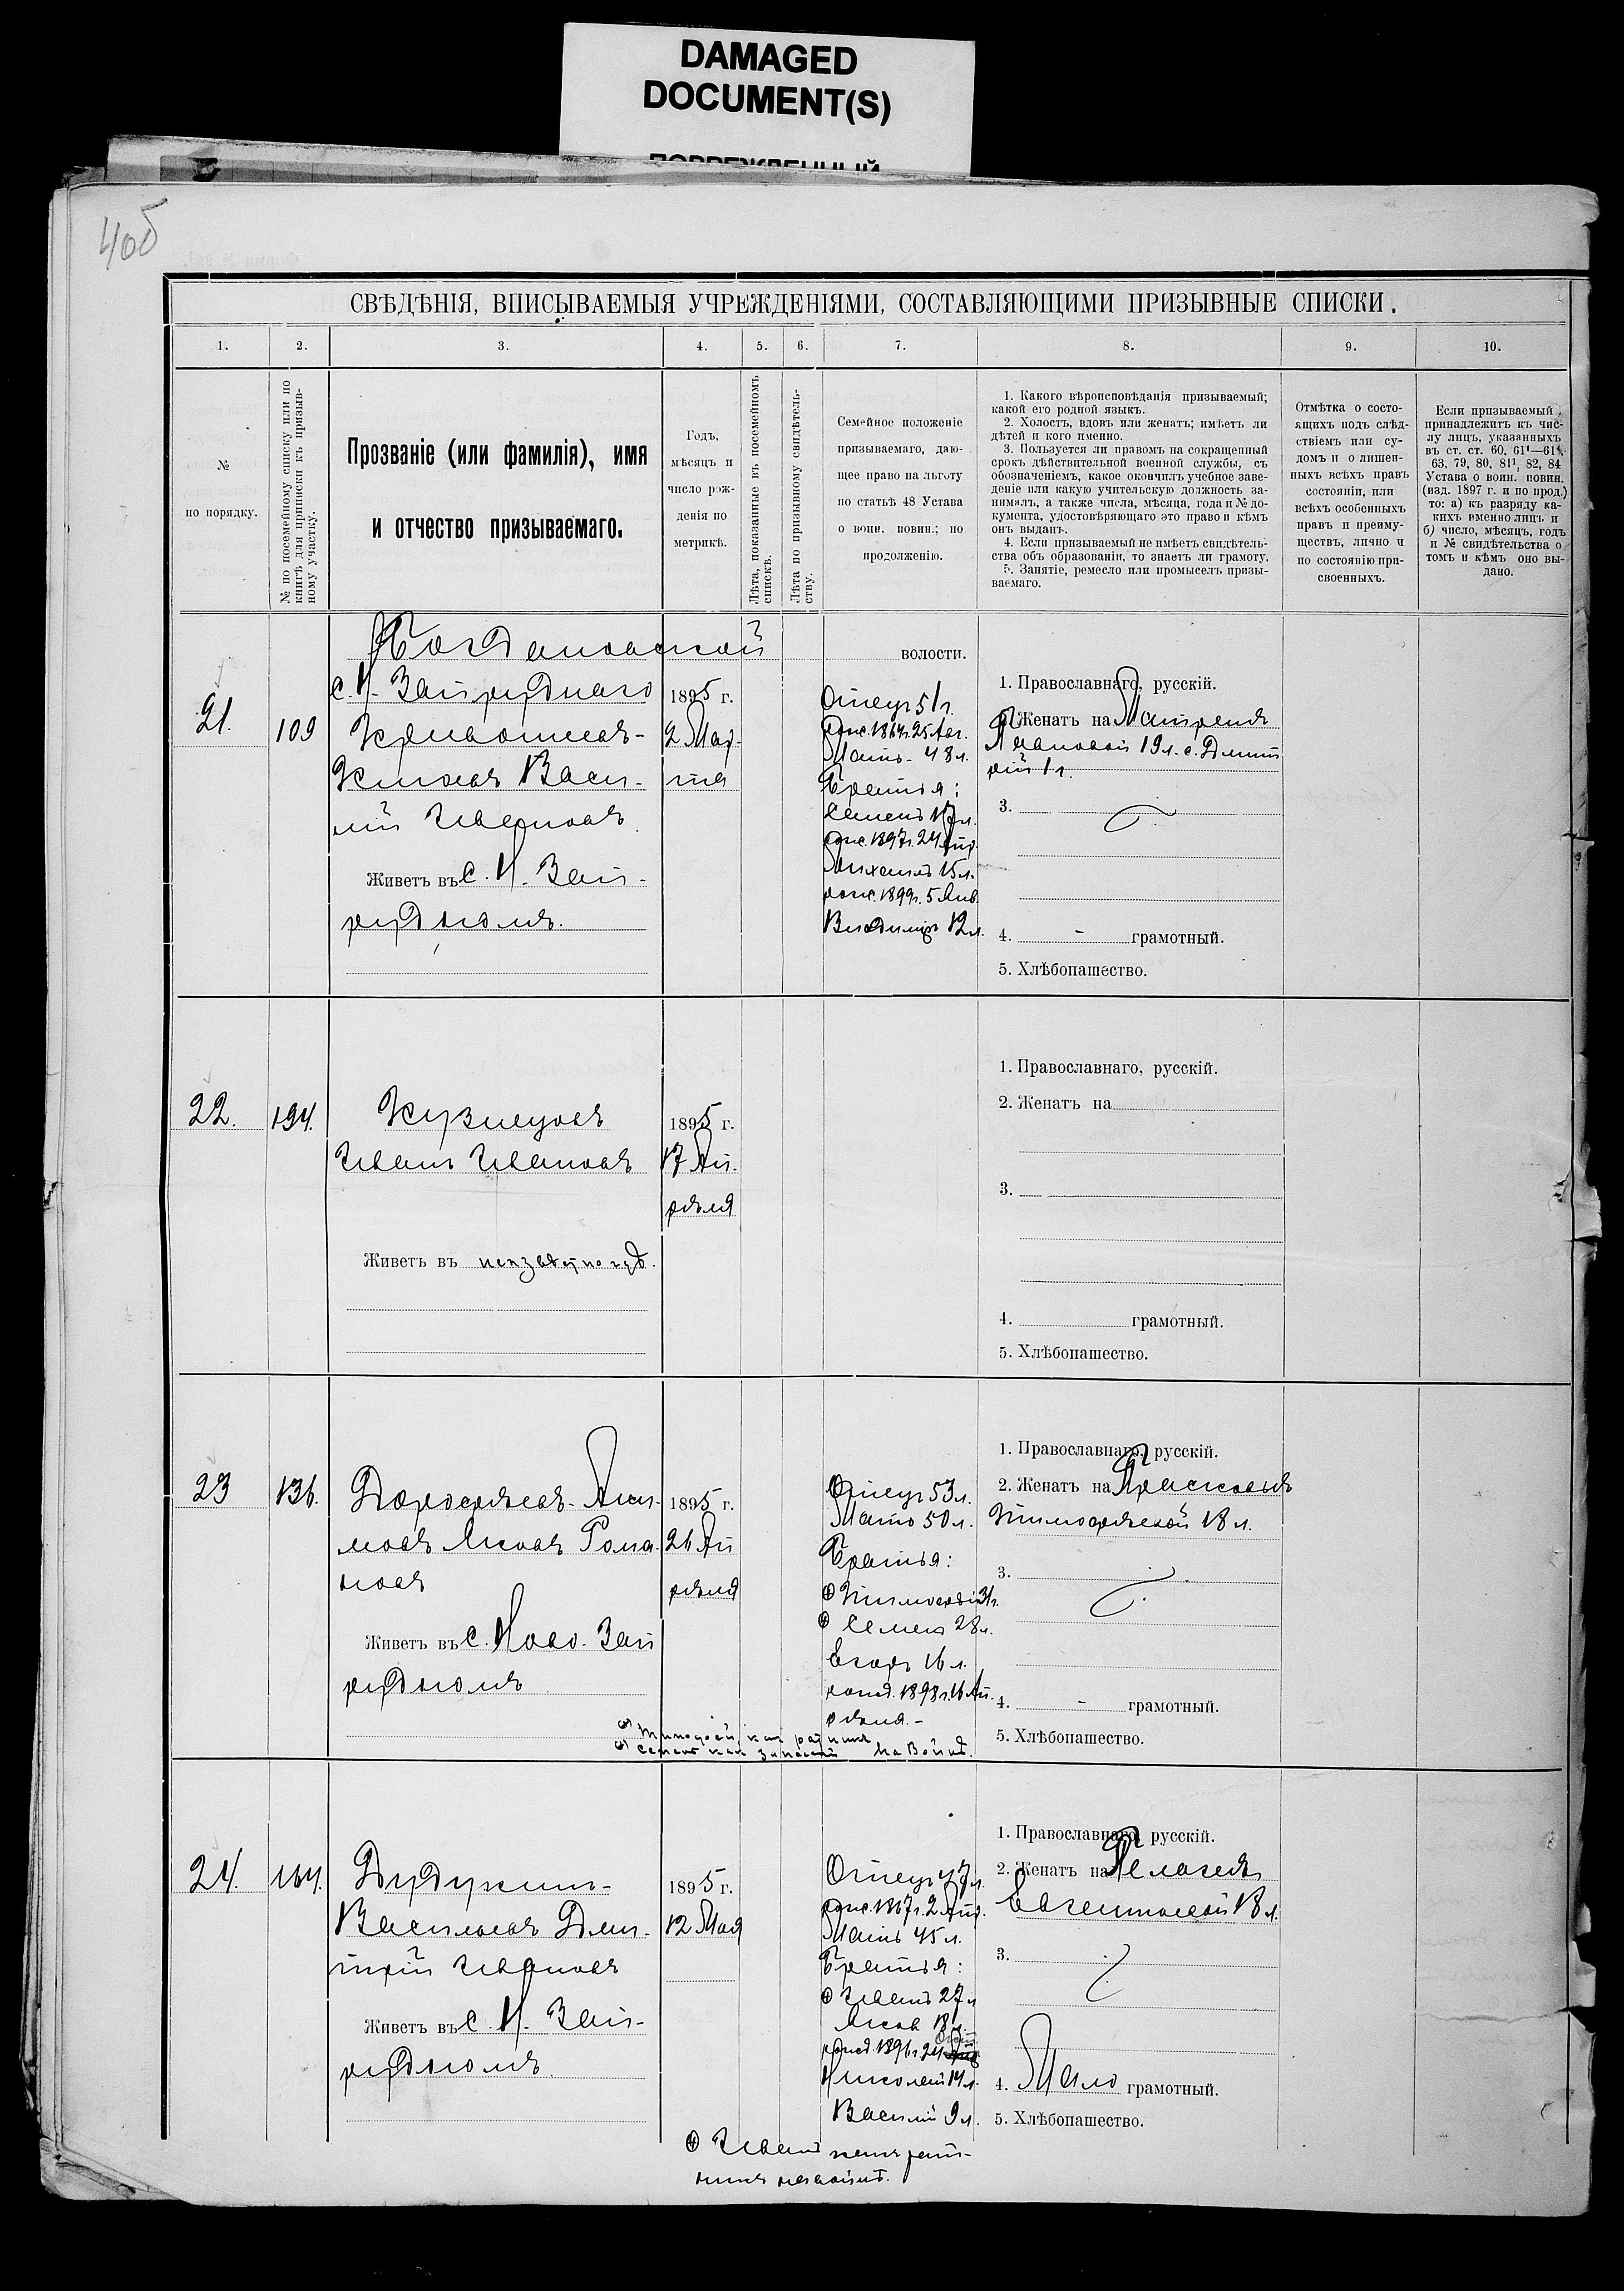 DAMAGED
DOCUMENT(S)
40б
СВѢДѢНІЯ, ВПИСЫВАЕМЫЯ УЧРЕЖДЕНІЯМИ, СОСТАВЛЯЮЩИМИ ПРИЗЫВНЫЕ СПИСКИ.
1. 2. 3. 4. 5. 6. 7. 8. 9. 10.
№
по порядку.
№ по посемейному списку или по
книгѣ для приписки къ призыв-
ному участку.
Прозваніе (или фамилія), имя
и отчество призываемаго.
Годъ,
мѣсяцъ и
число рож-
денія по
метрикѣ.
Лѣта, показанные въ посемейномъ
спискѣ.
Лѣта по призывному свидѣтель-
ству.
Семейное положеніе
призываемаго, даю-
щее право на льготу
по статьѣ 48 Устава
о воин. повин.; по
продолженію.
1. Какого вѣроисповѣданія призываемый;
какой его родной языкъ.
2. Холостъ, вдовъ или женатъ; имѣетъ ли
дѣтей и кого именно.
3. Пользуется ли правомъ на сокращенный
срокъ дѣйствительной военной службы, съ
обозначеніемъ, какое окончилъ учебное заве-
деніе или какую учительскую должность за-
нималъ, а также числа, мѣсяца, года и № до-
кумента, удостовѣряющаго это право и кѣмъ
онъ выданъ.
4. Если призываемый не имѣетъ свидѣтель-
ства объ образованіи, то знаетъ ли грамоту.
5. Занятіе, ремесло или промыселъ призы-
ваемаго.
Отмѣтка о состо-
ящихъ подъ слѣд-
ствіемъ или су-
домъ и о лишен-
ныхъ всѣхъ правъ
состоянія, или
всѣхъ особенныхъ
правъ и преиму-
ществъ, лично и
по состоянію при-
своенныхъ.
Если призываемый
принадлежитъ къ чис-
лу лицъ, указанныхъ
въ ст. ст. 60, 61¹—61⁴,
63, 79, 80, 81¹, 82, 84
Устава о воин. повин.
(изд. 1897 г. и по прод.)
то: а) къ разряду ка-
кихъ именно лицъ и
б) число, мѣсяцъ, годъ
и № свидѣтельства о
томъ и кѣмъ оно вы-
дано.
Богдановской волости.
с. Н. Запруднаго
21. 109
Василій Ивановъ
Живетъ въ с. Н. Зап-
рудномъ.
1895 г.
2 Мар-
та
Отецъ 51 г.
рож. 1864 г. 25 Авг.
Мать - 48 л.
Братья:
Семенъ 17 л.
рож. 1897 г. 24 Апр.
Михаилъ 15 л.
рож. 1899 г. 5 Янв.
Владиміръ 12 л.
1. Православнаго, русскій.
2. Женатъ на Матренѣ
Ивановой 19 л. с. Дмит
рій 1 г.
3.
4. - грамотный.
5. Хлѣбопашество.
22. 194.
Кузнецовъ
Иванъ Ивановъ
Живетъ въ неизвѣстно гдѣ.
1895 г.
17 Ап-
рѣля
1. Православнаго, русскій.
2. Женатъ на
3.
4. грамотный.
5. Хлѣбопашество.
23 136.
Дорофѣевъ - Аки-
мовъ Яковъ Рома-
новъ
Живетъ въ с. Ново-Зап
рудномъ
1895 г.
26 Ап
рѣля
Отецъ 53 л.
Мать 50 л.
Братья:
⊕ Тимофѣй 31 г.
⊕ Семенъ 28 л.
Егоръ 16 л.
рожд. 1898 г. 16 Ап-
рѣля. -
1. Православнаго, русскій.
2. Женатъ на Прасковьѣ
Тимофѣевой 18 л.
3.
4. - грамотный.
5. Хлѣбопашество.
⊕ Тимофей, как ратникъ
⊕ Семенъ как запасной на Войнѣ.
24. 164.
Дудукинъ-
Васильевъ Дми-
трій Ивановъ
Живетъ въ с. Н. Зап-
рудномъ.
1895 г.
12 Мая
Отецъ 47 л.
рож. 1867 г. 2 Апр.
Мать 45 л.
Братья:
⊕ Иванъ 27 л
Яковъ 18 л.
рожд. 1896 г. 24
Николай 14 л.
Василій 9 л.
1. Православнаго, русскій.
2. Женатъ на Пелагеѣ
Евгеньевой 18 л.
3.
4. Мало грамотный.
5. Хлѣбопашество.
⊕ Иванъ какъ рат-
никъ на войнѣ.